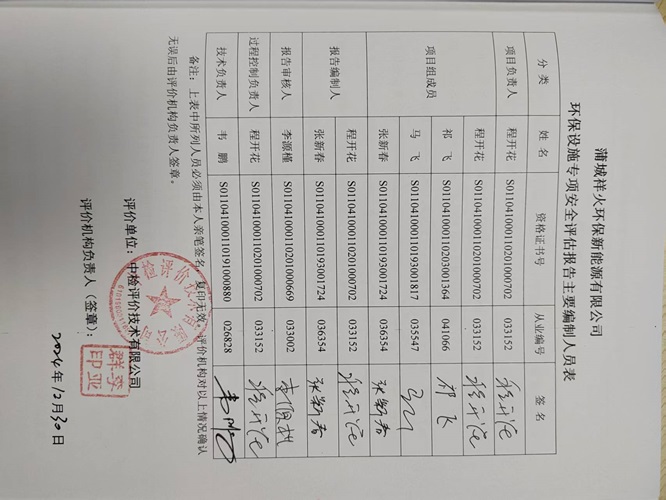 蒲城祥火环保新能源有限公司
环保设施专项安全评估报告主要编制人员表
分 类 姓 名 资格证书号 从业编号 签 名
项目负责人 程开花 S011041000110201000702 033152 程开花
项目组成员 程开花 S011041000110201000702 033152 程开花
祁 飞 S011041000110203001364 041066 祁飞
马 飞 S011041000110193001817 035547 马飞
张新春 S011041000110193001724 036354 张新春
报告编制人 程开花 S011041000110201000702 033152 程开花
张新春 S011041000110193001724 036354 张新春
报告审核人 李源槿 S011041000110201000669 033002
过程控制负责人 程开花 S011041000110201000702 033152 程开花
技术负责人 韦 鹏 S011041000110191000880 026828 韦鹏
备注：上表中所列人员必须由本人亲笔签名，复印无效。评价机构对以上情况确认
无误后由评价机构负责人签章。
评价单位：中检评价技术有限公司
评价机构负责人（签章）：
2024年12月30日